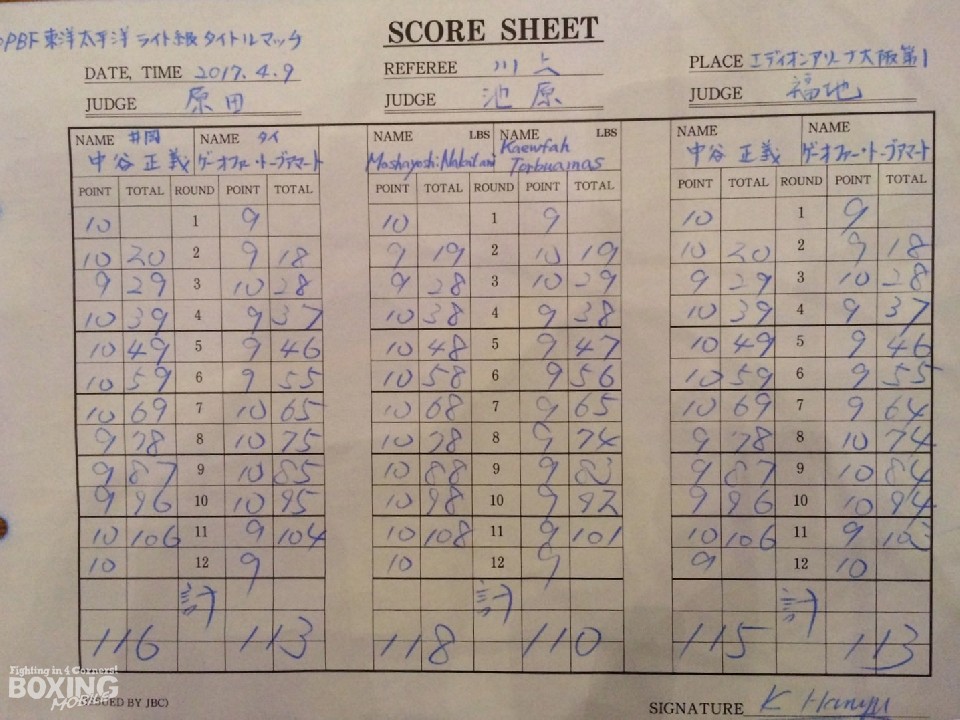 SCORE SHEET
OPBF東洋太平洋 ライト級タイトルマッチ
DATE, TIME 2017.4.9 REFEREE 川上 PLACE エディオンアリーナ大阪第1
JUDGE 原田 JUDGE 池原 JUDGE 福地
NAME 井岡 NAME タイ NAME LBS NAME LBS NAME NAME
中谷正義 ゲーオファー・トーブアマート Mashayoshi:Nakatani Kaewfah Torbuamas 中谷 正義 ゲーオファー・トーブアマート
POINT TOTAL ROUND POINT TOTAL POINT TOTAL ROUND POINT TOTAL POINT TOTAL ROUND POINT TOTAL
10 1 9 10 1 9 10 1 9
10 20 2 9 18 9 19 2 10 19 10 20 2 9 18
9 29 3 10 28 9 28 3 10 29 9 29 3 10 28
10 39 4 9 37 10 38 4 9 38 10 39 4 9 37
10 49 5 9 46 10 48 5 9 47 10 49 5 9 46
10 59 6 9 55 10 58 6 9 56 10 59 6 9 55
10 69 7 10 65 10 68 7 9 65 10 69 7 9 64
9 78 8 10 75 10 78 8 9 74 9 78 8 10 74
9 87 9 10 85 10 88 9 9 83 9 87 9 10 84
9 96 10 10 95 10 98 10 9 92 9 96 10 10 94
10 106 11 9 104 10 108 11 9 101 10 106 11 9 103
10 12 9 10 12 9 9 12 10
計 計 計
116 113 118 110 115 113
Fighting in 4 Corners!
BOXING
MOBILE
(ISSUED BY JBC) SIGNATURE K Hanyu